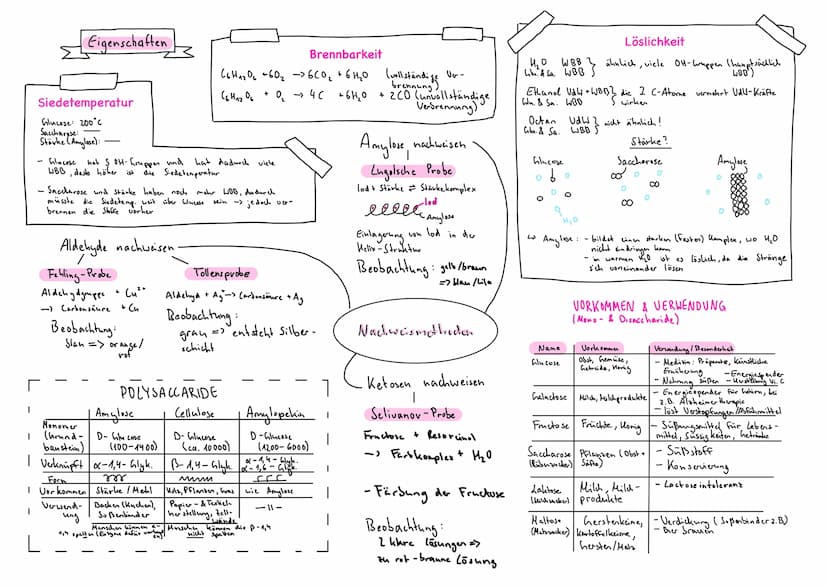 Eigenschaften
Siedetemperatur
Glucose: 200°C
Saccharose: —
Stärke (Amylose): —
- Glucose hat 5 OH-Gruppen und hat dadurch viele
WBB, desto höher ist die Siedetemperatur
- Saccharose und Stärke haben noch mehr WBB, dadurch
müsste die Siedetemp. weit über Glucose sein → jedoch ver-
brennen die Stoffe vorher
Brennbarkeit
C₆H₁₂O₆ + 6O₂ → 6CO₂ + 6H₂O (vollständige Ver-
brennung)
C₆H₁₂O₆ + O₂ → 4C + 6H₂O + 2CO (unvollständige
Verbrennung)
Löslichkeit
H₂O WBB } ähnlich, viele OH-Gruppen (hauptsächlich
WBB WBB)
Ethanol VdW+WBB } die 2 C-Atome vermehrt VdW-Kräfte
WBB wirken
Octan VdW } nicht ähnlich!
WBB
Stärke?
Glucose Saccharose Amylose
H₂O
↳ Amylose: - bildet einen starken (festen) Komplex, wo H₂O
nicht eindringen kann
- in warmem H₂O ist es löslich, da die Stränge
sich voneinander lösen
Nachweismethoden
Amylose nachweisen
Lugolsche Probe
Iod + Stärke ⇌ Stärkekomplex
Iod
Amylose
Einlagerung von Iod in der
Helix-Struktur
Beobachtung: gelb/braun
=> blau/lila
Aldehyde nachweisen
Fehling-Probe
Aldehydgruppe + Cu²⁺
→ Carbonsäure + Cu
Beobachtung:
blau => orange/
rot
Tollensprobe
Aldehyd + Ag⁺ → Carbonsäure + Ag
Beobachtung:
grau => entsteht Silber-
schicht
Ketosen nachweisen
Selivanov-Probe
Fructose + Resorcinol
→ Farbkomplex + H₂O
- Färbung der Fructose
Beobachtung:
2 klare Lösungen =>
zu rot-braune Lösung
POLYSACCARIDE
Amylose Cellulose Amylopektin
Monomer
(Grund-
baustein) D-Glucose (100-1400) D-Glucose (ca. 10000) D-Glucose (1200-6000)
Verknüpft α-1,4-Glyk. β-1,4-Glyk. α-1,4-Glyk. α-1,6-Glyk.
Form
Vorkommen Stärke / Mehl Holz, Pflanzen, wie Amylose
Verwend-
ung Backen (Kuchen), Soßenbinder Papier- & Textil-
herstellung, -11-
Menschen können Menschen können die β-1,4
spalten (Enzyme dafür) nicht spalten
VORKOMMEN & VERWENDUNG
(Mono- & Disaccharide)
Name Vorkommen Verwendung/Besonderheit
Glucose Obst, Gemüse, Getreide, Honig - Medizin: Präparate, künstliche
Ernährung - Energiespender
- Nahrung süßen - Herstellung Vi. C
Galactose Milch, Milchprodukte - Energiespender für Gehirn, bei
z.B. Alzheimertherapie
- löst Verstopfungen/Abführmittel
Fructose Früchte, Honig - Süßungsmittel für Lebens-
mittel, Süssigkeiten, Getränke
Saccharose Pflanzen (Obst - Süßstoff
(Rübenzucker) - Konservierung
Laktose Milch, Milch- - Lactoseintoleranz
(Milchzucker) produkte
Maltose Gerstenkeime, - Verdickung (Soßenbinder z.B.)
(Malzzucker) Kartoffelkeime, - Bier brauen
Gersten/Malz